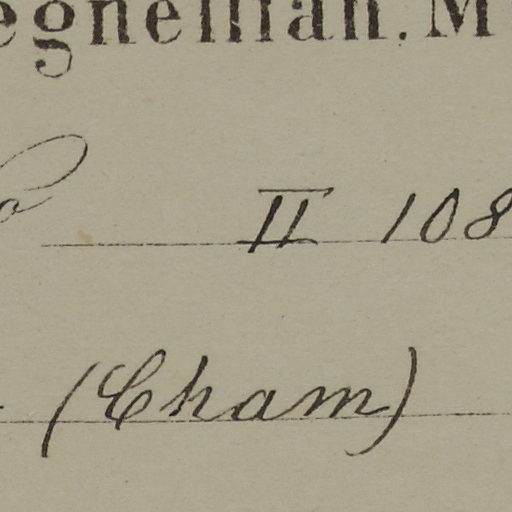 egnellian. M
o II 108
(Cham)